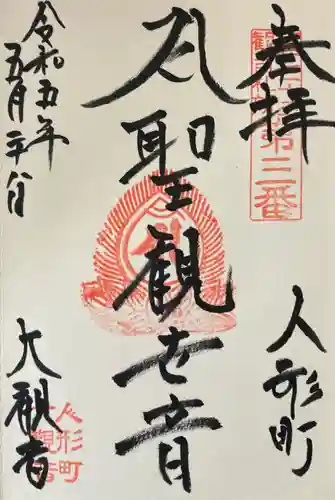 奉拝
第三番
人形町
聖観世音
大観音
人形町
大観音
令和五年
五月二十八日